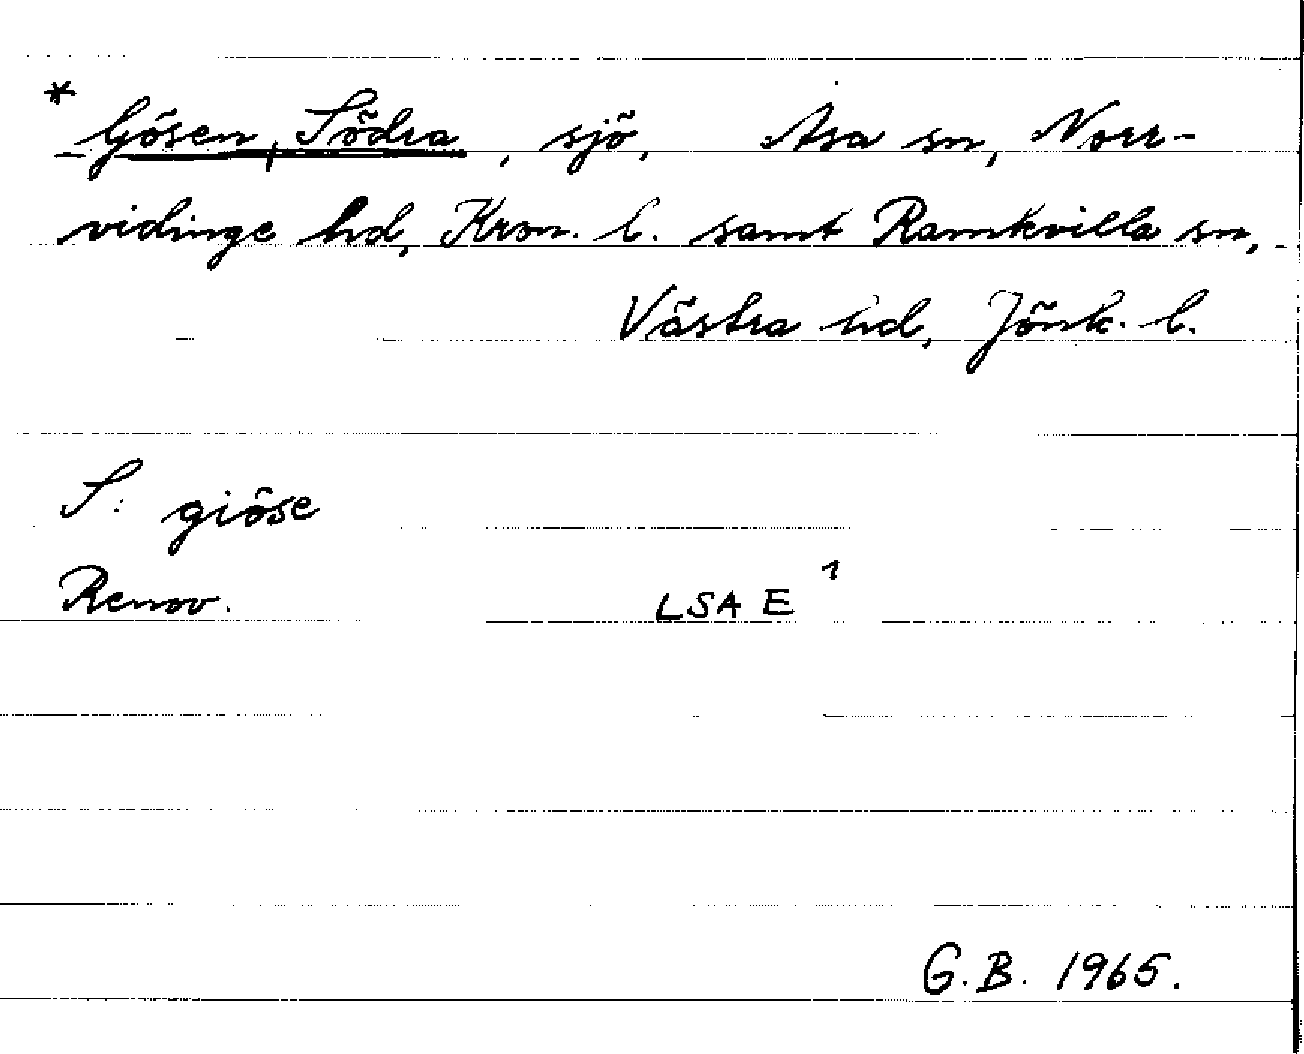 * Gösen, Södra, sjö, Asa sn, Norr-
vidinge hd, Kron. l. samt Ramkvilla sn,
Västra hd, Jönk. l.
S: giöse
Renov. LSA E 1
G.B. 1965.